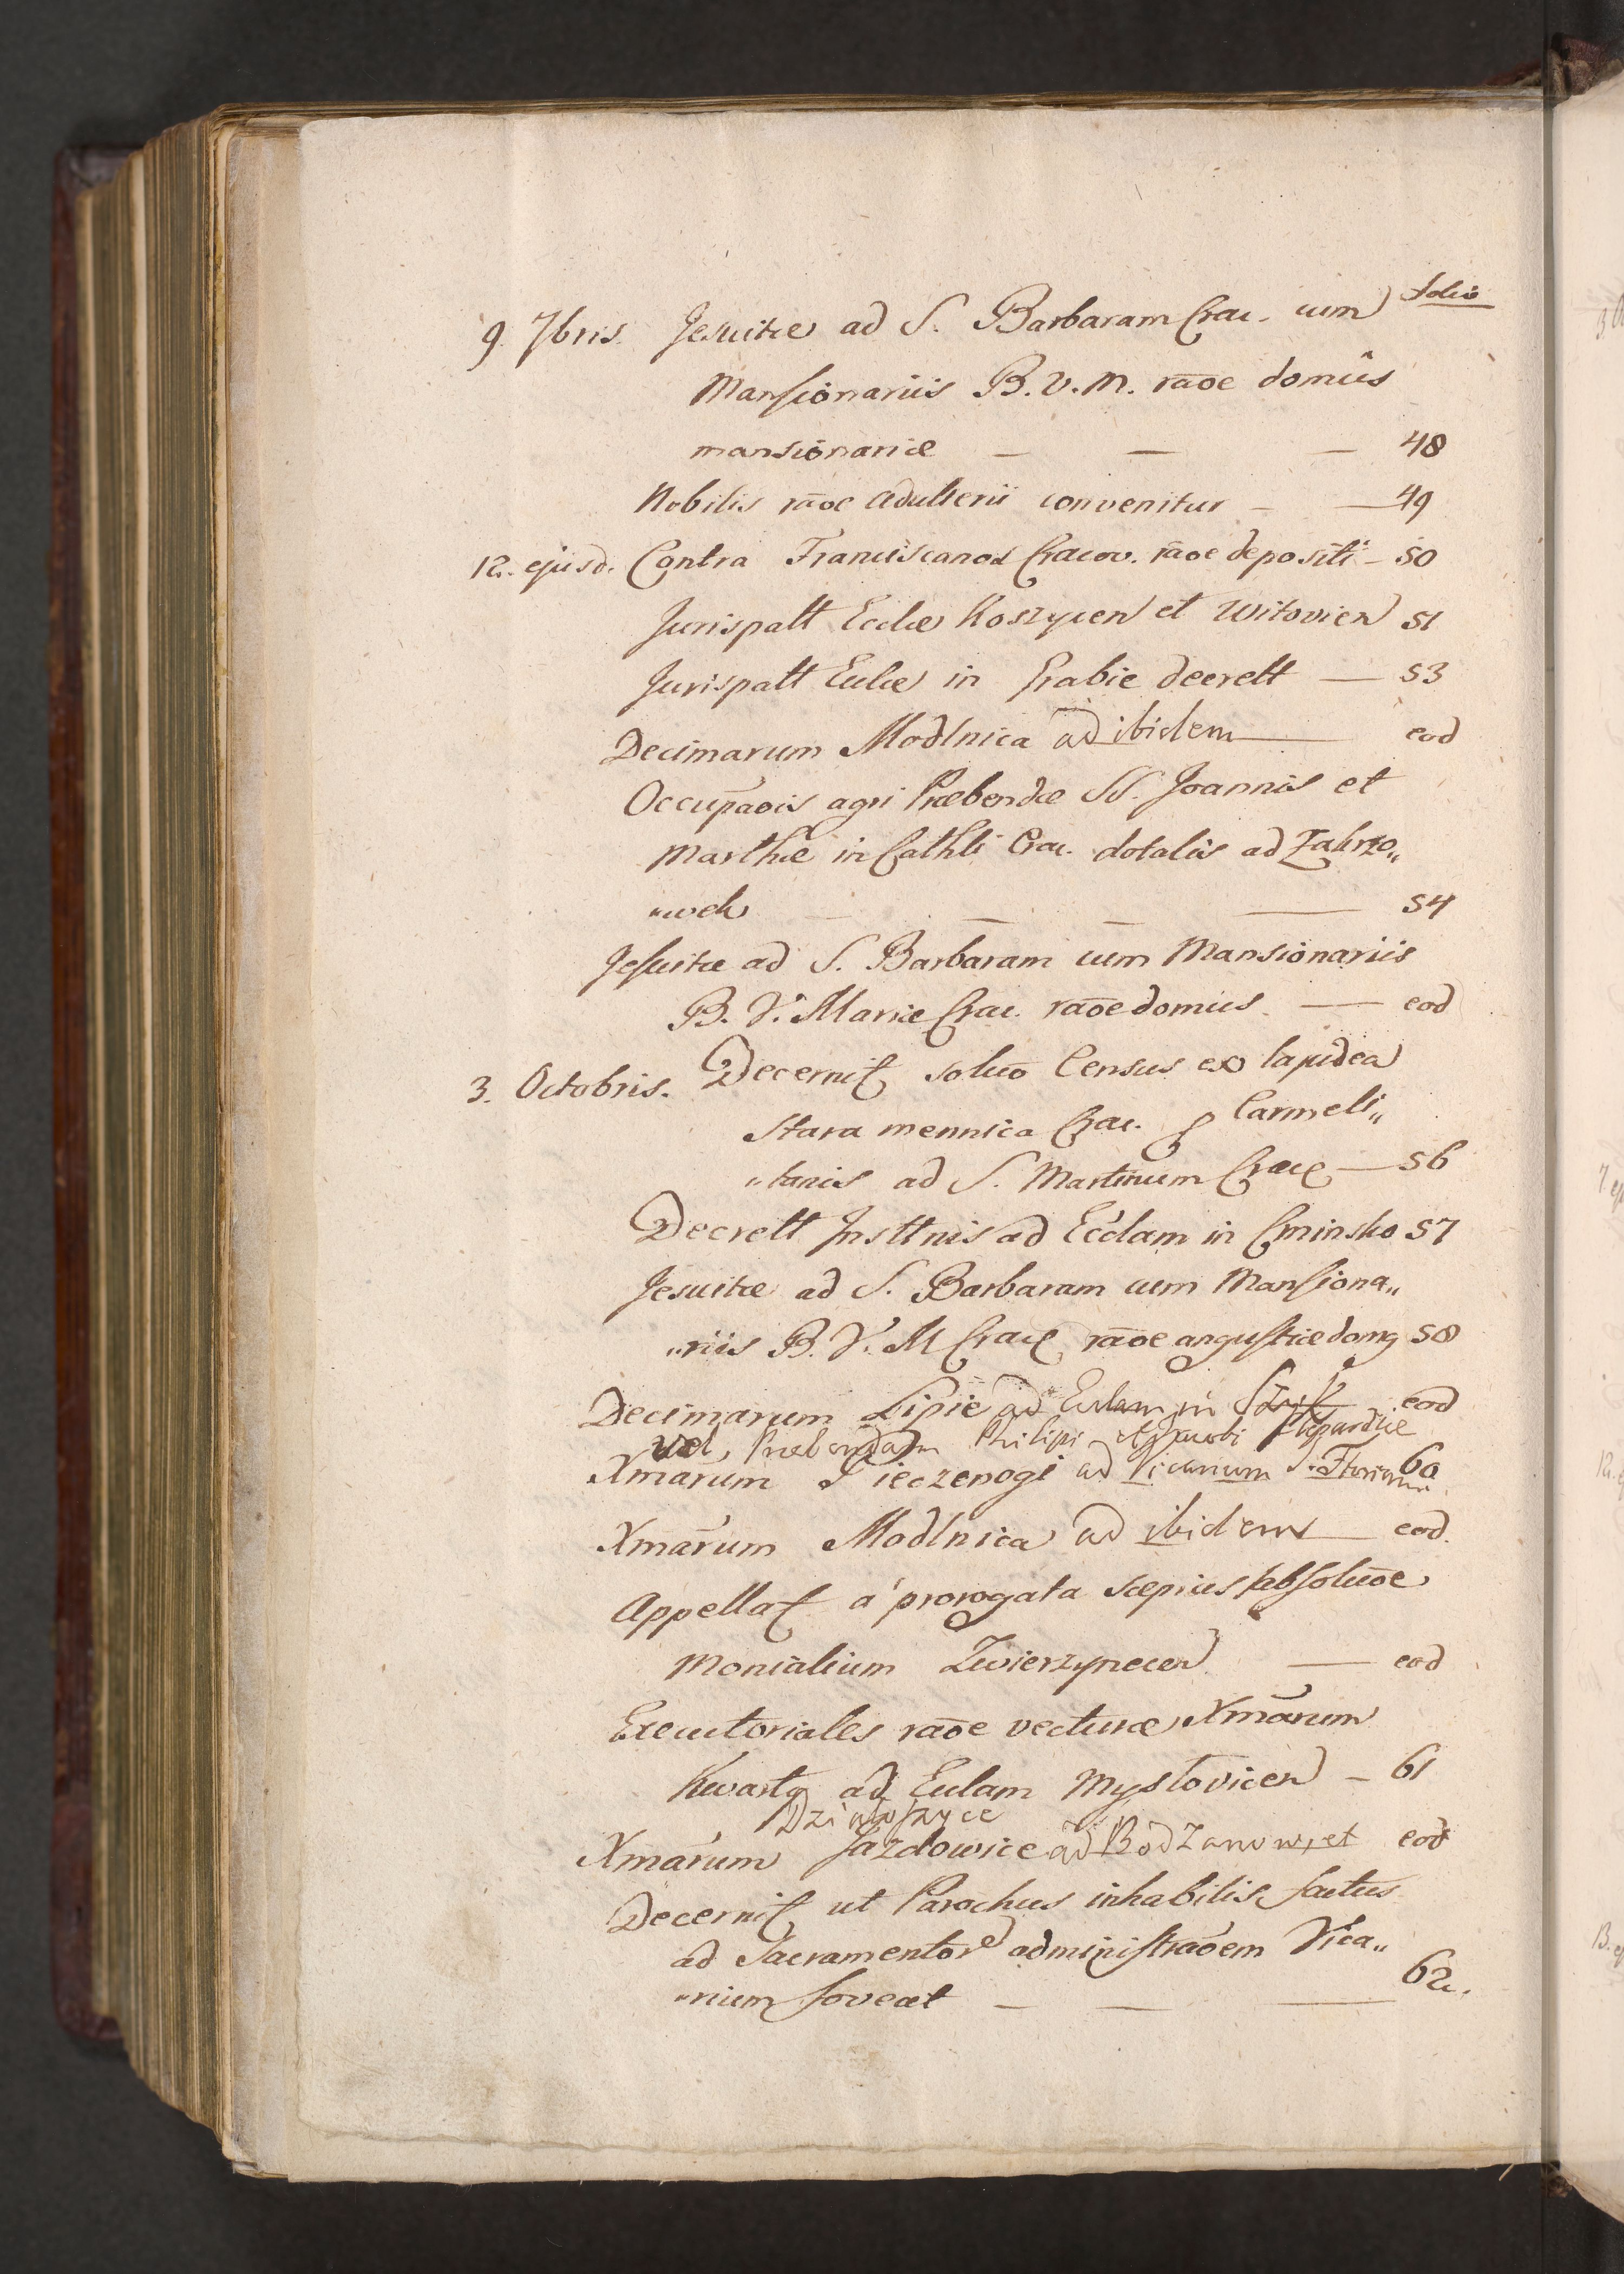 folio
9. 7bris. Jesuitæ ad S. Barbaram Crac. cum
Mansionariis B. V. M. raōe domûs
mansionariæ — — — 48
Nobilis raōe adulterii convenitur — — 49
12. ejusd. Contra Franciscanos Cracov. raōe depositi — 50
Jurispatt Eccłæ Koszycen et Witovien 51
Jurispatt Eccłæ in Grabie decrett — 53
Decimarum Modlnica ad ibidem — eod
Occupāois agri Præbendæ SS. Joannis et
Marthæ in Cathli Crac. dotalis ad Zakrzo„
„wek — — — 54
Jesuitæ ad S. Barbaram cum Mansionariis
B. V. Mariæ Crac. raōe domus — eod
3. Octobris. Decernit solūo Census ex lapidea
Stara mennica Crac. p Carmeli„
„tanis ad S. Martinum Crac — 56
Decrett Insttnis ad Ecclam in Cminsko 57
Jesuitæ ad S. Barbaram cum Mansiona„
„riis B. V. M Crac raōe angustiæ domg 58
Decimarum Lipie ad Ecclam in eod
vel Præbendam Philipi et Jacobi Clepardiæ
Xmarum Pieczenogi ad Vicarium S. Floriani 60
Xmārum Modlnica ad ibidem — eod.
Appellat à prorogata sæpius absolūoe
Monialium Zwierzynecen — eod
Executoriales raōe vecturæ Xmārum
Kwasty ad Ecclam Mystovicen — 61
Działoszyce
Xmārum Jazdowice ad Bodzanow, et eod
Decernit ut Parochus inhabilis factus
ad Sacramentor administrāoem Vica„
„rium foveat — — — 62.